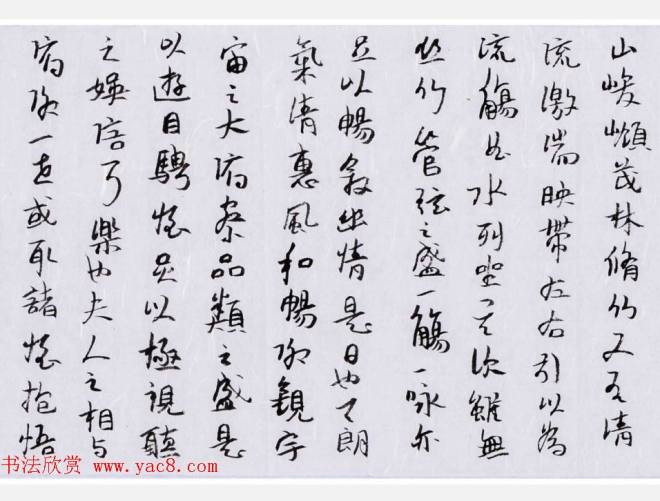 山峻嶺茂林脩竹又有清
流激湍映帶左右引以為
流觴曲水列坐其次雖無
絲竹管弦之盛一觴一詠亦
足以暢敘幽情是日也天朗
氣清惠風和暢仰觀宇
宙之大俯察品類之盛是
以遊目騁懷足以極視聽
之娛信可樂也夫人之相与
俯仰一世或取諸懷抱悟
书法欣赏 www.yac8.com